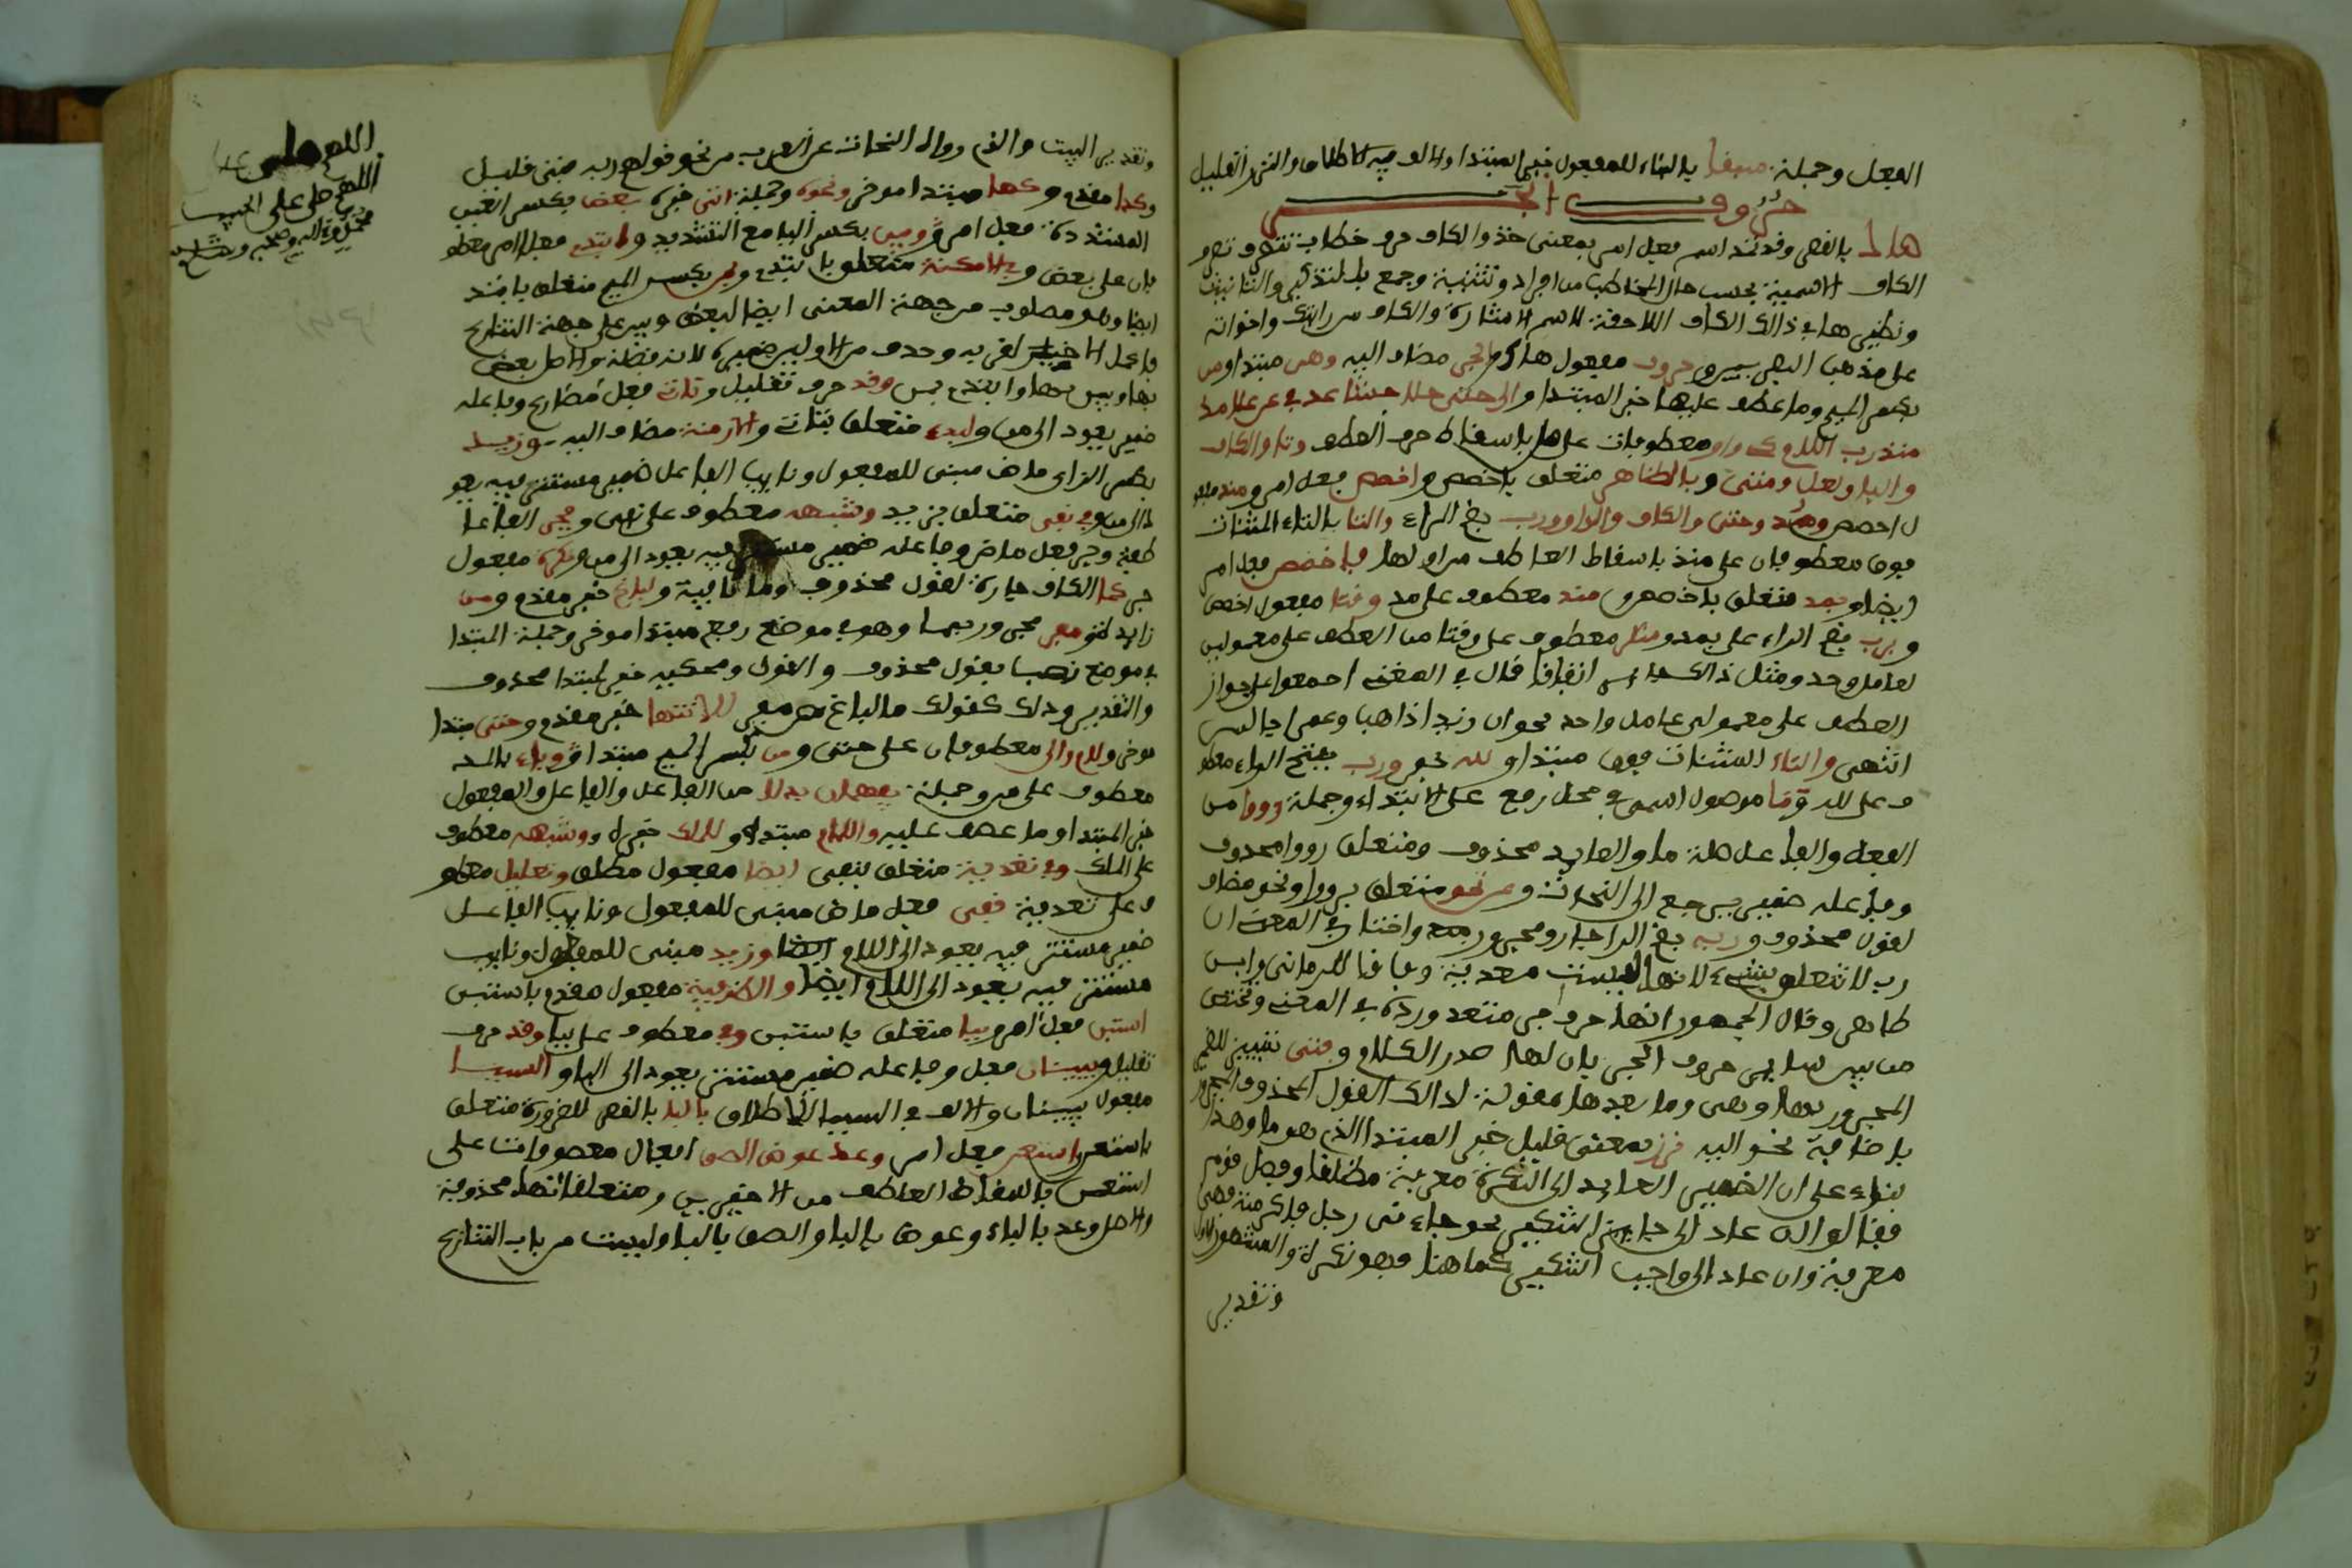 الفعل وجملة سبقا بالبناء للمفعول خبر المبتدا والالف فيه للاطلاق والنزر القليل
حروف الجر
هاك بالقصر وقد تمد اسم فعل امر بمعنى خذ والكاف حرف خطاب تتصرف تصرف
الكاف الاسمية بحسب حال المخاطب من افراد وتثنية وجمع بالتذكير والتانيث
ونظيرها في ذالك الكاف اللاحقة لاسم الاشارة والكاف من رايتك واخواته
على مذهب البصريين حروف مفعول هاك والجر مضاف اليه وهى مبتدا ومن
بكسر الميم وما عطف عليها خبر المبتدا والى حتى خلا حاشا عدا في عن على مذ
منذ رب اللام كى واو معطوفات على ما باسقاط حرف العطف وتا والكاف
والبا ولعل ومتى وبالظاهر متعلق باخصص واخصص فعل امر ومنذ مفعو
ل اخصص ومذ وحتى والكاف والواو ورب بضم الراء والتا بالتاء المثنات
فوق معطوفان على منذ باسقاط العاطف من اولها واخصص فعل امر
ايضا وبمذ متعلق باخصص ومنذ معطوف على مذ وقتا مفعول اخصص
وبرب بضم الراء على بمذ ومنكر معطوف على وقتا من العطف على معمولين
لعامل واحد ومثل ذالك جايز اتفاقا قال في المغنى اجمعوا على جواز
العطف على معمولى عامل واحد نحو ان زيدا ذاهب وعمرا جالس
انتهى والتاء المثنات فوق مبتدا ولله خبر ورب بفتح الراء معطو
ف على لله وما موصول اسمى في محل رفع على الابتداء وجملة رووا من
الفعل والفاعل صلة ما والعايد محذوف ومتعلق رووا محذوف
وفاعله ضمير يرجع الى النحات ومن نحو متعلق برووا ونحو مضاف
لقول محذوف وربه بضم الرا جار ومجرور واختار في المغنى ان
رب لا تتعلق بشىء لانها ليست معدية وفاقا للرمانى وابن
طاهر وقال الجمهور انها حرف جر متعد ورده في المغنى وتختص
من بين سايير حروف الجر بان لها صدر الكلام وفتى تمييز للضمير
المجرور بها وهى وما بعدها مقولة لذالك القول المحذوف المجرور
باضافة نحو اليه نزر بمعنى قليل خبر المبتدا الذى هو ما وهذا
بناء على ان الضمير العايد الى النكرة معرفة مطلقا وفصل قوم
فقالوا ان عاد الى جايز التنكير نحو جاءنى رجل فاكرمته فهى
معرفة وان عاد الى واجب التنكير كما هنا فهو نكرة والمشهور الاول
وتقدير
وتقدير البيت والذى رواه النحات عن العرب من نحو قولهم ربه فتى قليل
وكذا مقدم وكها مبتدا موخر ونحوه وجملة اتى خبره بعض بكسر العين
المشددة فعل امر وبين بكسر اليا مع التشديد وابتدئ فعلا امر معطو
فان على بعض وفي الامكنة متعلق بابتدئ وبمن بكسر الميم متعلق بابتد
ايضا وهو مطلوب من جهة المعنى ايضا لبعض وبين على جهة التنازع
فاعمل الاخير لقربه وحذف من الاولين ضميره لانه فضلة والاصل بعض
بها وبين بها وابتدئ بمن وقد حرف تقليل وتاتى فعل مضارع وفاعله
ضمير يعود الى من ولبدء متعلق بتاتى والازمنة مضاف اليه وزيد
بكسر الزاى ماض مبنى للمفعول ونايب الفاعل ضمير مستتر فيه يعود
الى من وفي نفى متعلق بزيد وشبهه معطوف على نفى وجر الفا عا
طفة وجر فعل ماض وفاعله ضمير مستتر فيه يعود الى من ونكرة مفعول
جر كما الكاف جارة لقول محذوف وما نافية ولباغ خبر مقدم ومن
زايدة ومفر مجرور بها وهو في موضع رفع مبتدا موخر وجملة المبتدا
في موضع نصب بقول محذوف والقول ومحكيه خبر لمبتدا محذوف
والتقدير وذلك كقولك ما لباغ من مفر للانتها خبر مقدم وحتى مبتدا
موخر ولام والى معطوفان على حتى ومن بكسر الميم مبتدا وباء بالمد
معطوف على من وجملة يفهمان بدلا من الفاعل والفاعل والمفعول
خبر المبتدا وما عطف عليه واللام مبتدا وللملك خبره وشبهه معطوف
على الملك وفي تعدية متعلق بقفى ايضا مفعول مطلق وتعليل معطو
ف على تعدية قفى فعل ماض مبنى للمفعول ونايب الفاعل
ضمير مستتر فيه يعود الى اللام ايضا وزيد مبنى للمجهول ونايب
مستتر فيه يعود الى اللام ايضا والظرفية مفعول مقدم باستبن
استبن فعل امر وببا متعلق باستبن وفي معطوف على ببا وقد حرف
تقليل ويبينان فعل وفاعله ضمير مستتر يعود الى البا والسببا
مفعول يبينان والالف في السببا للاطلاق بالبا بالقصر للضرورة متعلق
باستعن واستعن فعل امر وعد عوض الصق افعال معطوفات على
استعن باسقاط العاطف من الاخيرين ومتعلقاتها محذوفة
والاصل وعد بالباء وعوض بالبا والصق بالبا وليست من باب التنازع
اللهم صلى على
اللهم صلى على الحبيب
محمد واله وصحبه وسلم